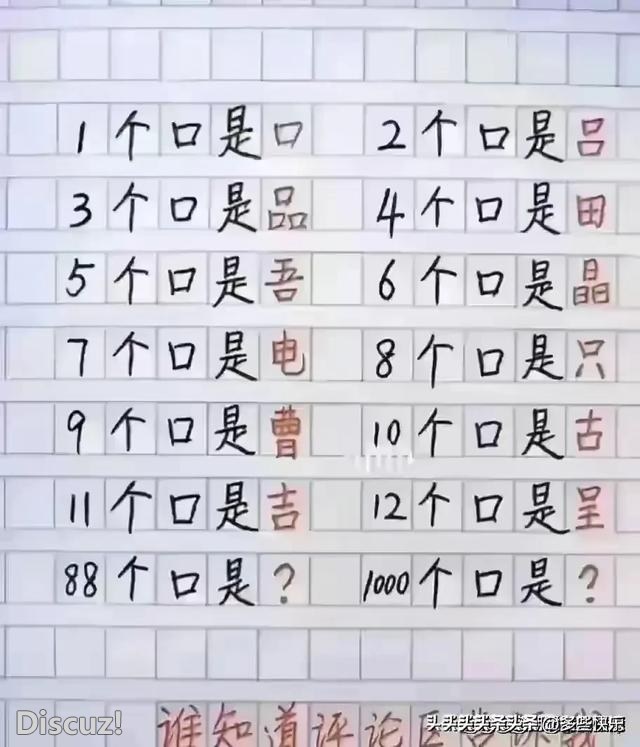 1个口是口 2个口是吕
3个口是品 4个口是田
5个口是吾 6个口是晶
7个口是电 8个口是只
9个口是曹 10个口是古
11个口是吉 12个口是呈
88个口是? 1000个口是?
谁知道评论区
Discuz!